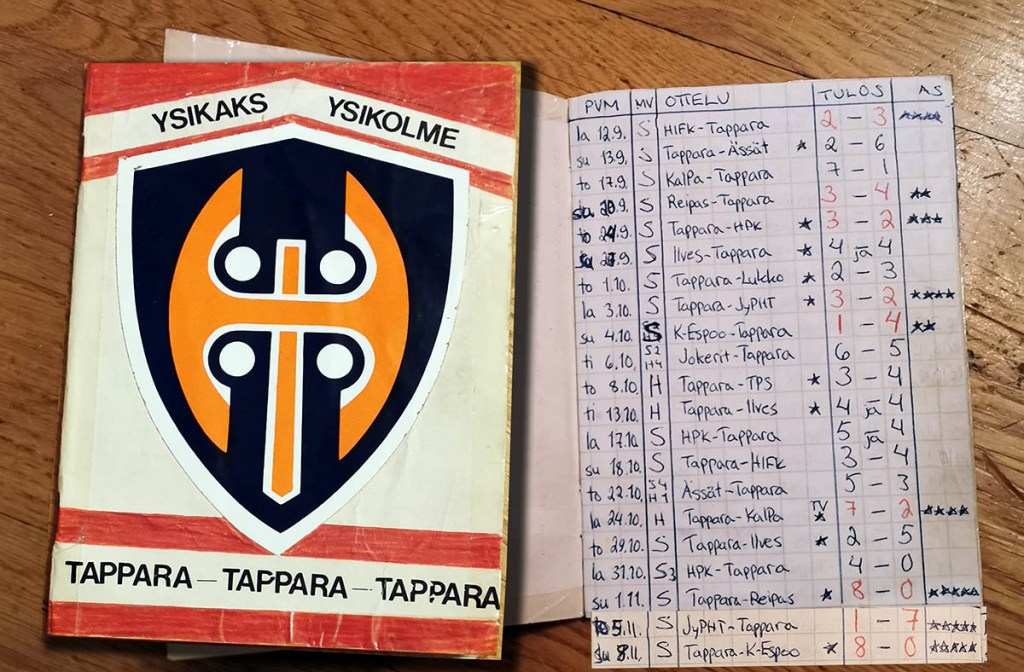 YSIKAKS YSIKOLME
TAPPARA – TAPPARA – TAPPARA
PVM MV OTTELU TULOS AS
la 12.9. S HIFK-Tappara 2 – 3 ★★★★
su 13.9. S Tappara-Ässät ★ 2 – 6
to 17.9. S KalPa-Tappara 7 – 1
su 20.9. S Reipas-Tappara 3 – 4 ★★
to 24.9. S Tappara-HPK ★ 3 – 2 ★★★
su 27.9. S Ilves-Tappara ★ 4 jä 4
to 1.10. S Tappara-Lukko ★ 2 – 3
la 3.10. S Tappara-JyPHT ★ 3 – 2 ★★★★
su 4.10. S K-Espoo-Tappara 1 – 4 ★★
ti 6.10. S2 H4 Jokerit-Tappara 6 – 5
to 8.10. H Tappara-TPS ★ 3 – 4
ti 13.10. H Tappara-Ilves ★ 4 jä 4
la 17.10. S HPK-Tappara 5 jä 4
su 18.10. S Tappara-HIFK 3 – 4
to 22.10. S4 H1 Ässät-Tappara 5 – 3
la 24.10. H Tappara-KalPa TV ★ 7 – 2 ★★★★
to 29.10. S Tappara-Ilves ★ 2 – 5
la 31.10. S3 HPK-Tappara 4 – 0
su 1.11. S Tappara-Reipas ★ 8 – 0 ★★★★★
to 5.11. S JyPHT-Tappara 1 – 7 ★★★★★
su 8.11. S Tappara-K-Espoo ★ 8 – 0 ★★★★★